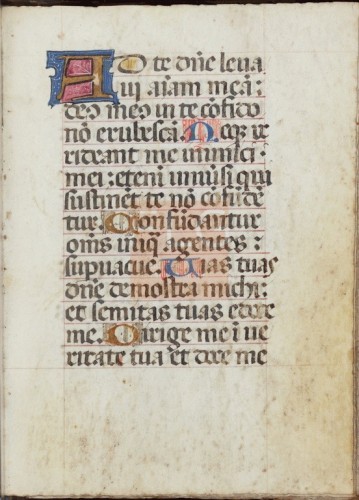 AD te dn̄e leua
ui aīam meā:
deꝰ meꝰ in te cōfido
nō erubescā. Neqꝫ ir
rideant me inimici
mei: etenī uniūsi qui
sustinet te nō cōfide
tur. Confūdantur
oms iniq̄ agentes:
supuacue. Uias tuas
dn̄e demostra michi:
et semitas tuas edoce
me. Dirige me ī ue
ritate tua et doce me